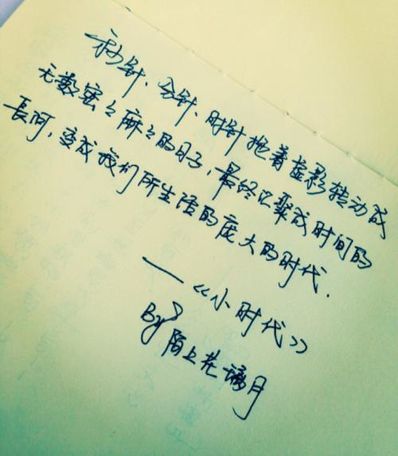 秒针、分针、时针拖着虚影转动成
无数密密麻麻的日子，最终汇聚成时间的
长河，变成我们所生活的庞大的时代.
——《小时代》
By 陌上花谪月